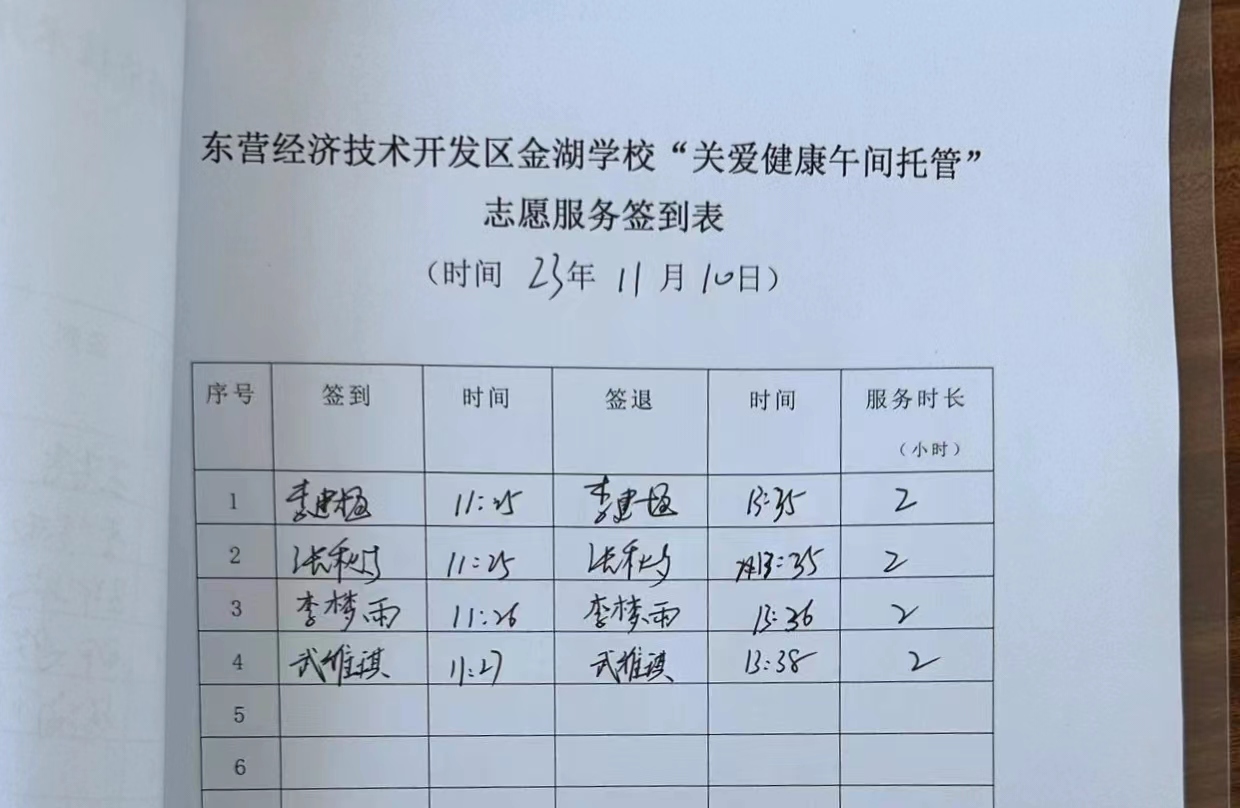 东营经济技术开发区金湖学校“关爱健康午间托管”
志愿服务签到表
（时间 23年 11月 10日）
序号 签到 时间 签退 时间 服务时长
（小时）
1 李建 11:25 李建 13:35 2
2 张秋 11:25 张秋 13:35 2
3 李梦雨 11:26 李梦雨 13:36 2
4 武维祺 11:27 武维祺 13:38 2
5
6